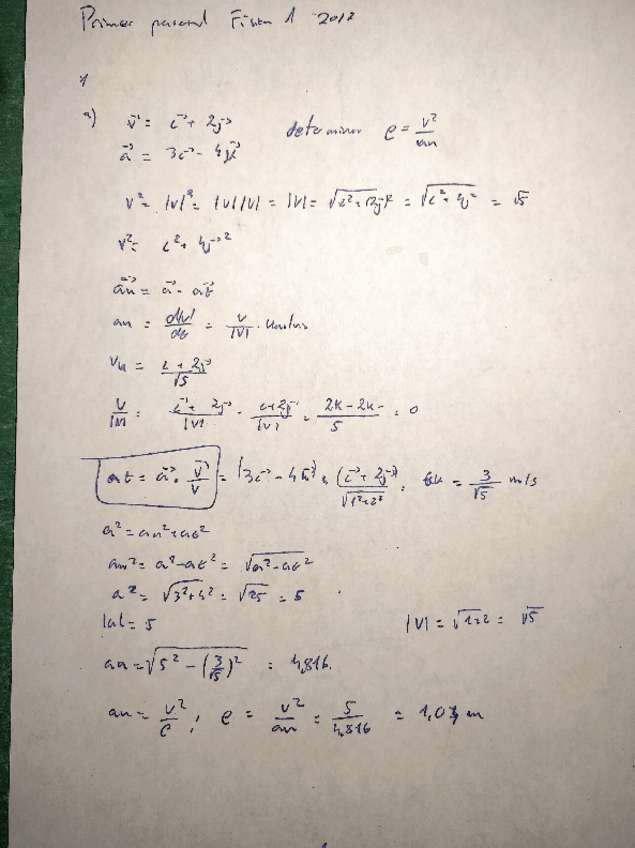 Primer parcial Física 1 2012
1
a) v⃗ = i⃗ + 2j⃗ determinar ρ = v²/an
a⃗ = 3i⃗ - 4k⃗
v² = |v|² = |v||v| = |v| = √5
v² = i² + 4j⃗²
an⃗ = a⃗ - at⃗
an = d|v|/dt = v/|v| .
vu = i + 2j⃗/√5
v/|v| = i⃗ + 2j⃗/|v| · i + 2j⃗/|v| = 2k - 2k/5 = 0
at = a⃗ · v⃗/v = (3i⃗ - 4k⃗) · (i⃗ + 2j⃗)/√1²+2² = 3/√5 m/s
a² = an² + at²
an² = a² - at² = √a² - at²
a² = √3²+4² = √25 = 5
|a| = 5 |v| = √1+2² = √5
an = √5² - (3/√5)² = 4,816.
an = v²/ρ ; ρ = v²/an = 5/4,816 = 1,03 m